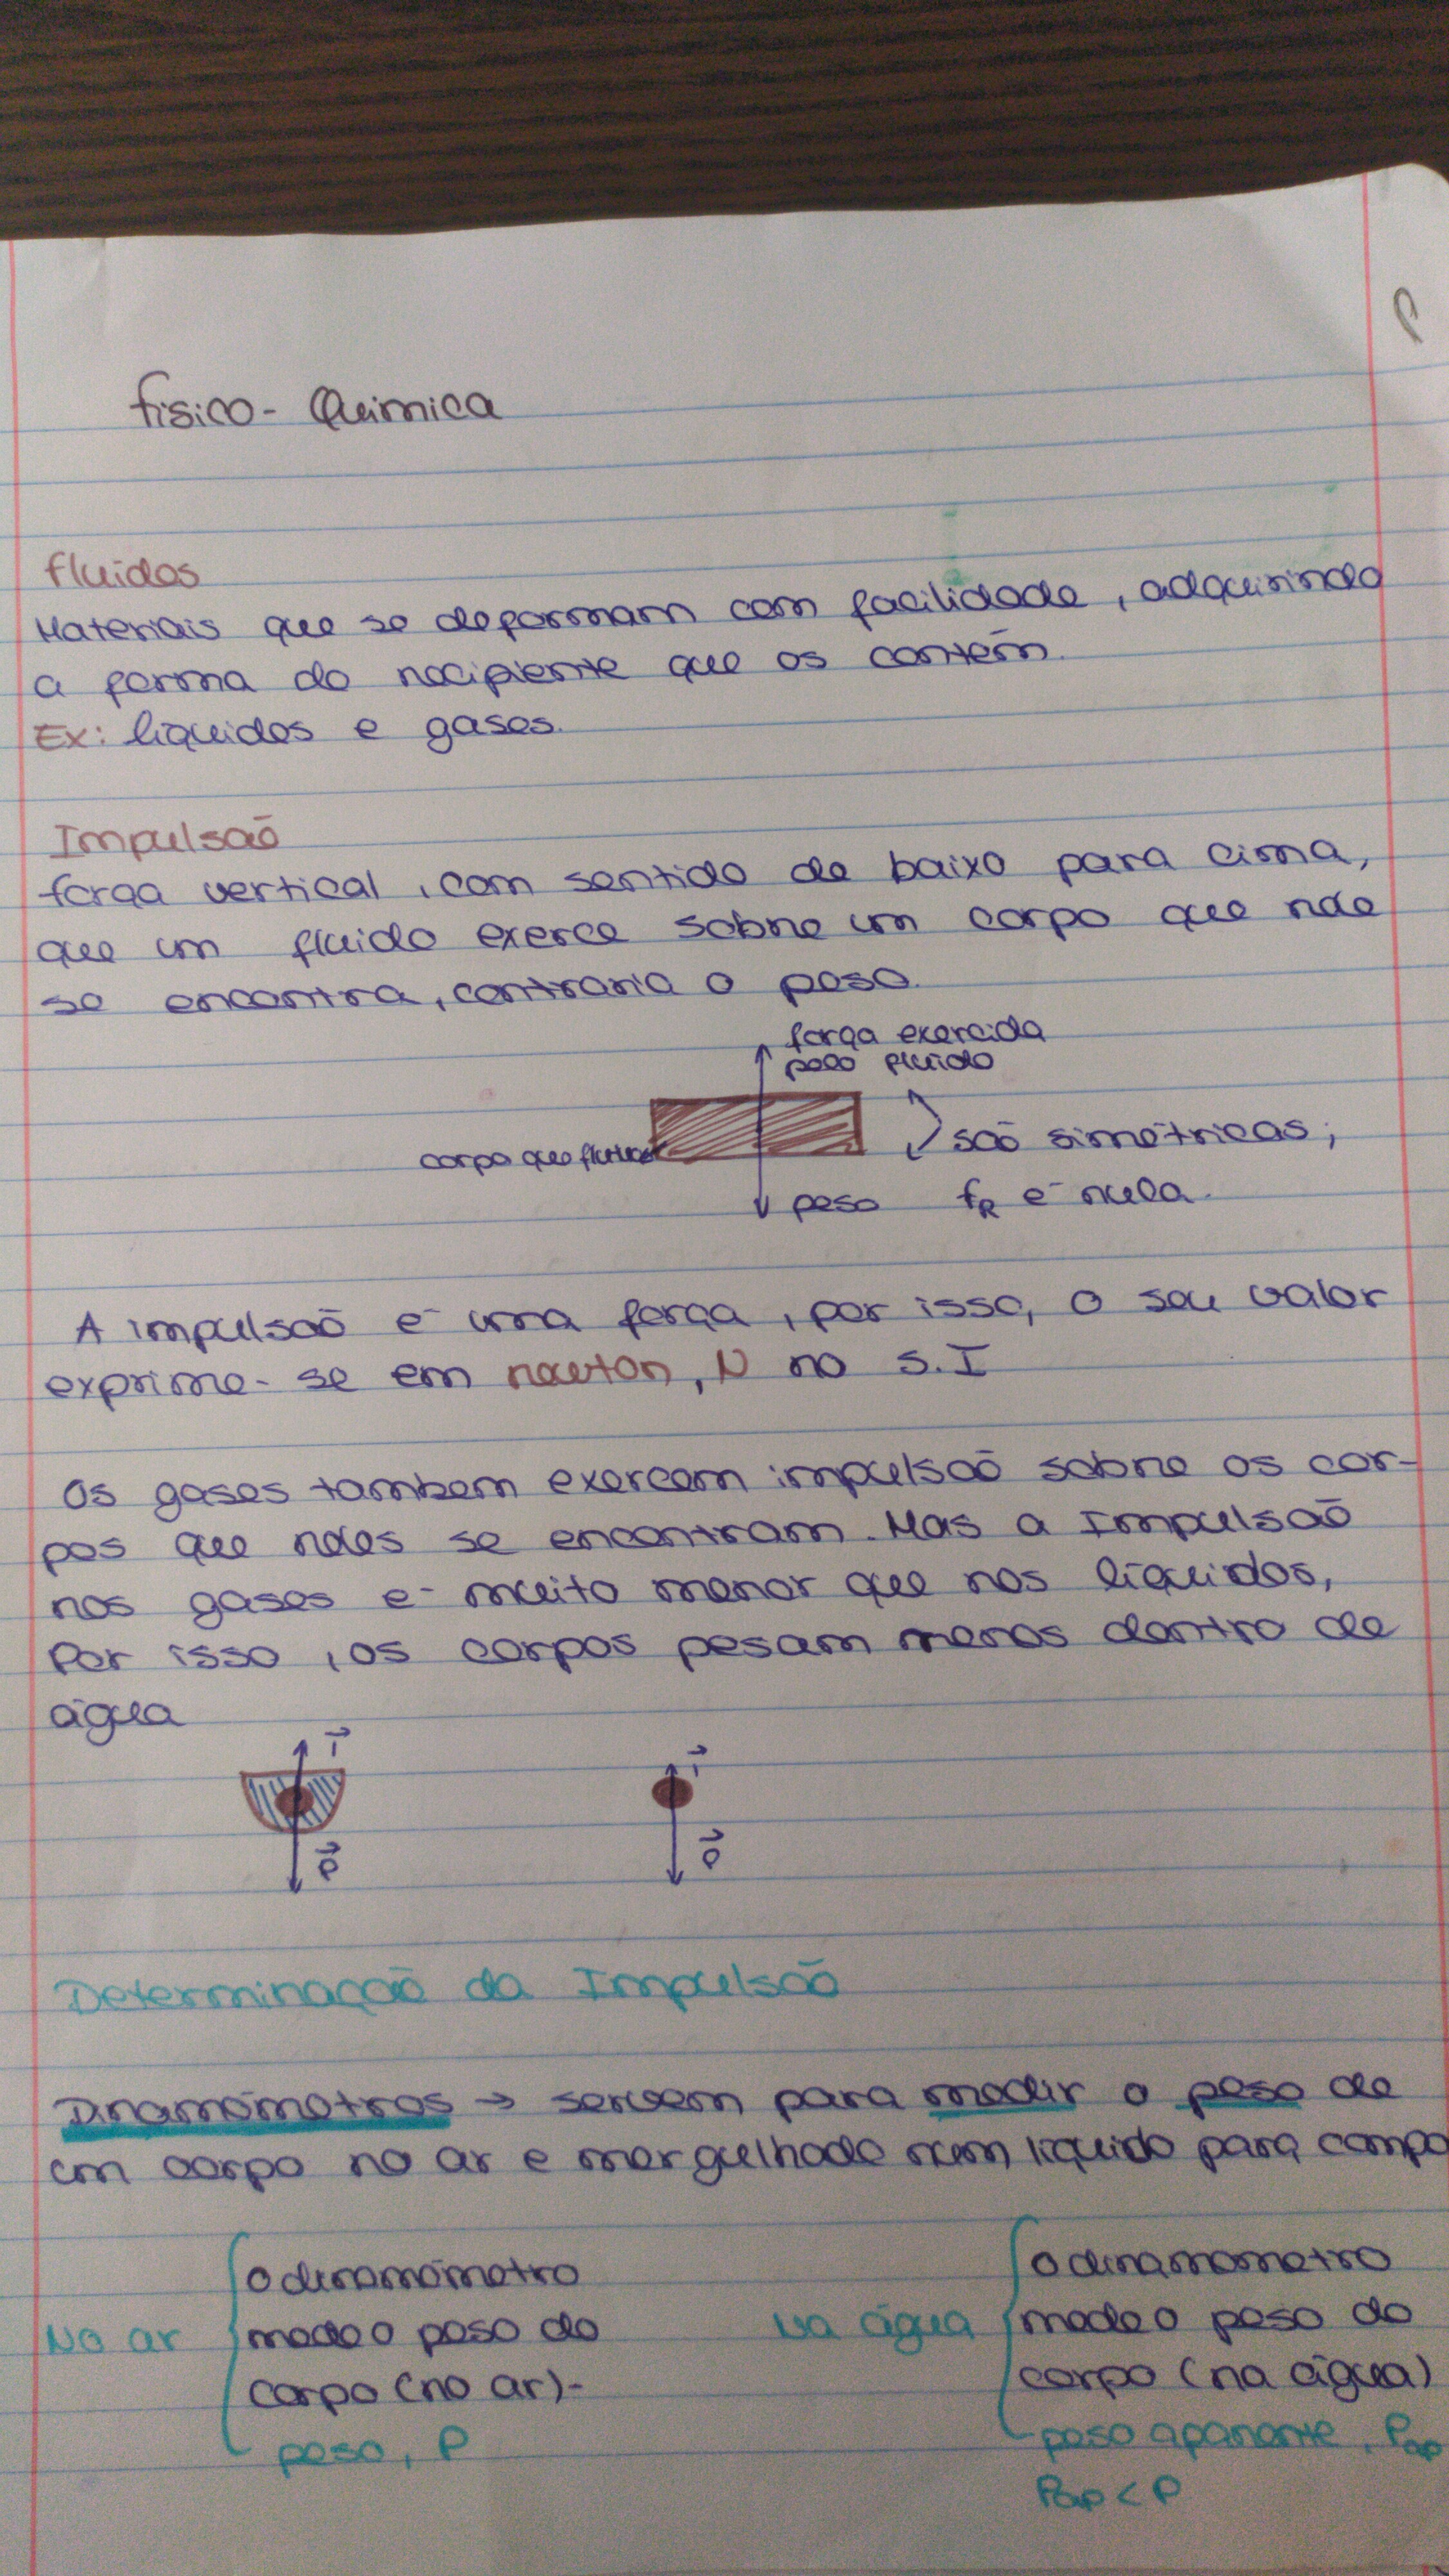 Físico-Química
Fluidos
Materiais que se deformam com facilidade, adquirindo
a forma do recipiente que os contém.
Ex: líquidos e gases.
Impulsão
força vertical, com sentido de baixo para cima,
que um fluido exerce sobre um corpo que nele
se encontra, contraria o peso.
força exercida
pelo fluido
corpo que flutua
são simétricas;
peso FR é nula.
A impulsão é uma força, por isso, o seu valor
exprime-se em newton, N no S.I
Os gases tambem exercem impulsão sobre os cor-
pos que neles se encontram. Mas a Impulsão
nos gases é muito menor que nos líquidos,
Por isso, os corpos pesam menos dentro de
água
I
I
P
P
Determinação da Impulsão
Dinamómetros → servem para medir o peso de
um corpo no ar e mergulhado num líquido para
No ar
o dinamómetro
mede o peso do
corpo (no ar)-
peso, P
Na água
o dinamometro
mede o peso do
corpo (na água)
peso aparente, Pap
Pap < P